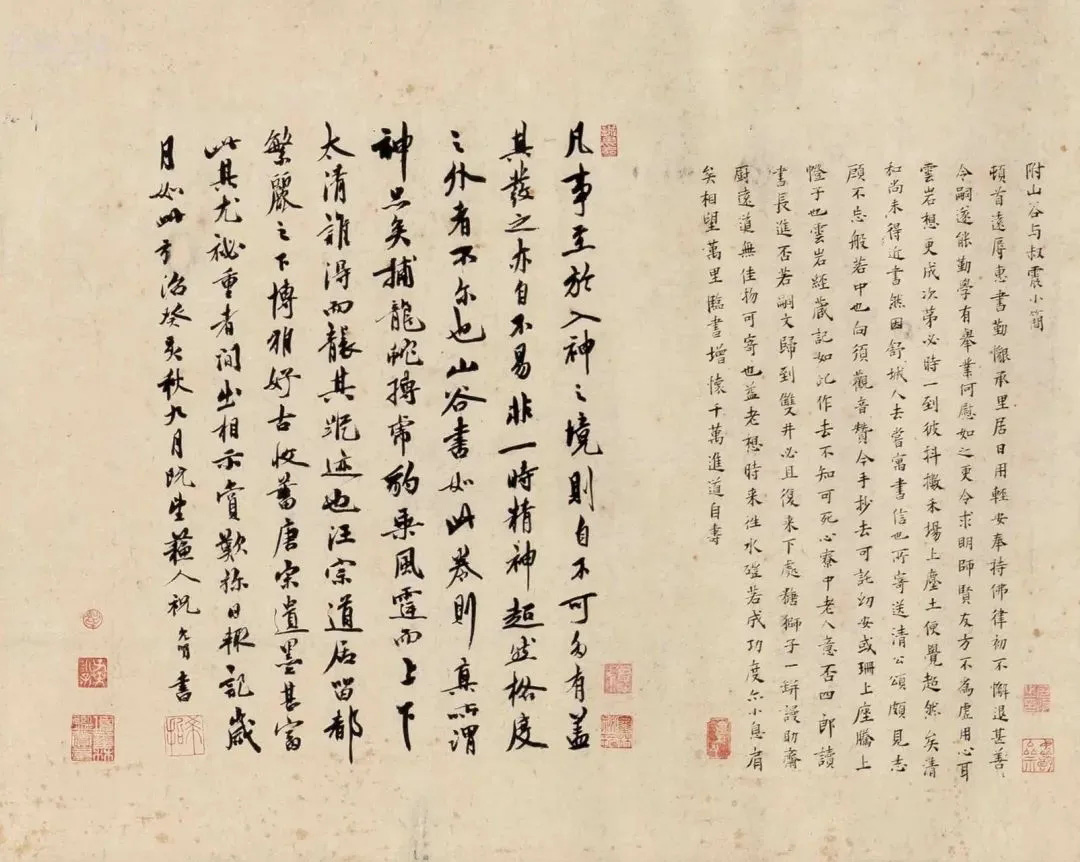 附山谷与叔震小简
頓首遠辱惠書勤懇承里居日用輕安奉持佛律初不懈退甚善
令嗣遂能勤學有舉業何慰如之更令求明師賢友方不為虛用心耳
雲岩想更成次第必時一到彼抖擻禾場上塵土便覺超然矣清
和尚未得近書然因舒城人去嘗寓書信也所寄送清公頌頗見志
頋不忘般若中也向須觀音贊今手抄去可託幼安或珊上座騰上
憕子也雲岩經藏記如此作去不知可死心寮中老人意否四郎讀
書長進否若嗣文歸到雙井必且復來下處糖獅子一缾謾助齋
厨遠道無佳物可寄也益老想時来往水磑若成功度亦小息肩
矣相望萬里臨書增懷千萬進道自壽
凡事至於入神之境則自不可多有蓋
其發之亦自不易非一時精神超然格度
之外者不尔也山谷書如此卷則真所謂
神品矣捕龍蛇搏虎豹乘風霆而上下
太清誰得而襲其踪迹也汪宗道居留都
繁麗之下博雅好古收蓄唐宋遺墨甚富
此其尤祕重者间出相示賞歎弥日輙記歲
月如此弘治癸亥秋九月既望蘇人祝允明書